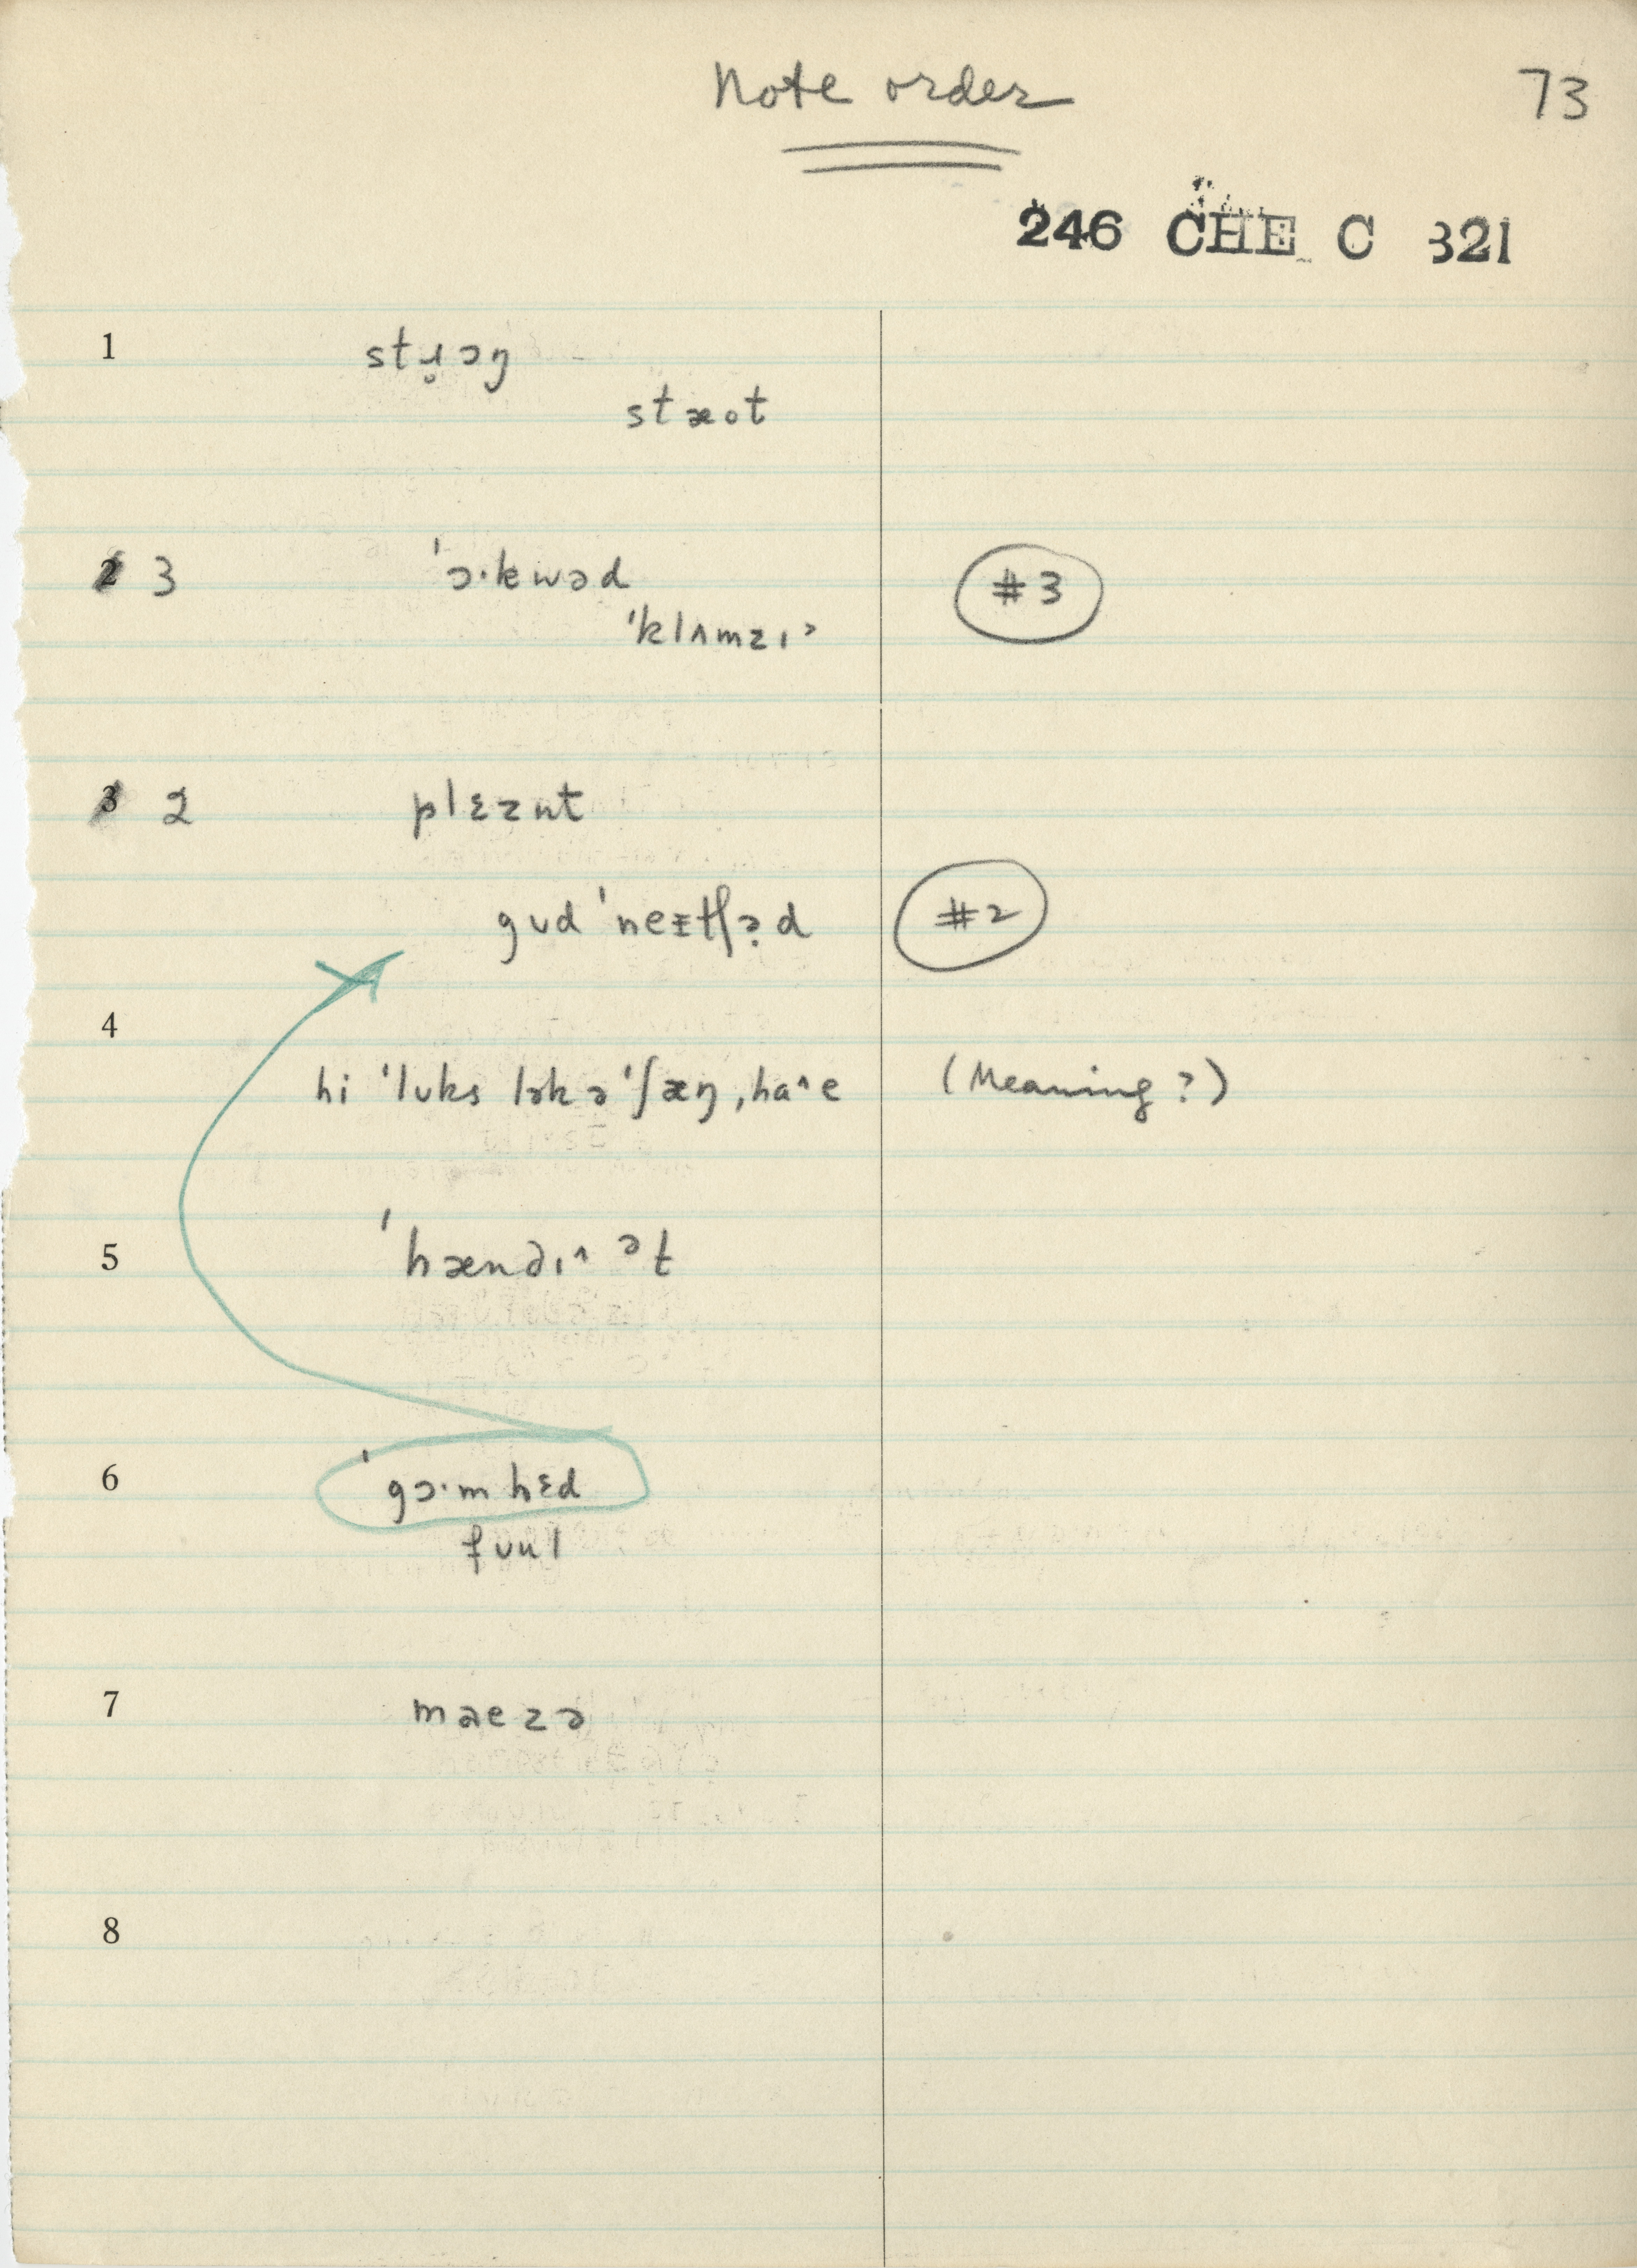 Note order
73
246 CHE C 321
1
stɹ̥ɔŋ
stæot
2 3
ˈɔ·kwəd
#3
ˈklʌmzɪ˃
3 2
plɛznt
gʊd ˈneɪtʃə̣d
#2
4
hi ˈlʊks lək ə ˈʃæŋ,haˆe
(Meaning?)
5
ˈhændɪˆ ət
6
ˈgɔ·m hɛd
fʊul
7
maezə
8